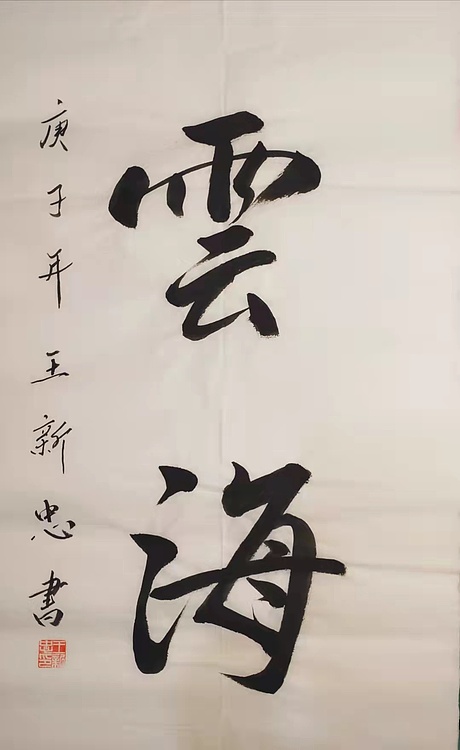 雲海
庚子年王新忠書